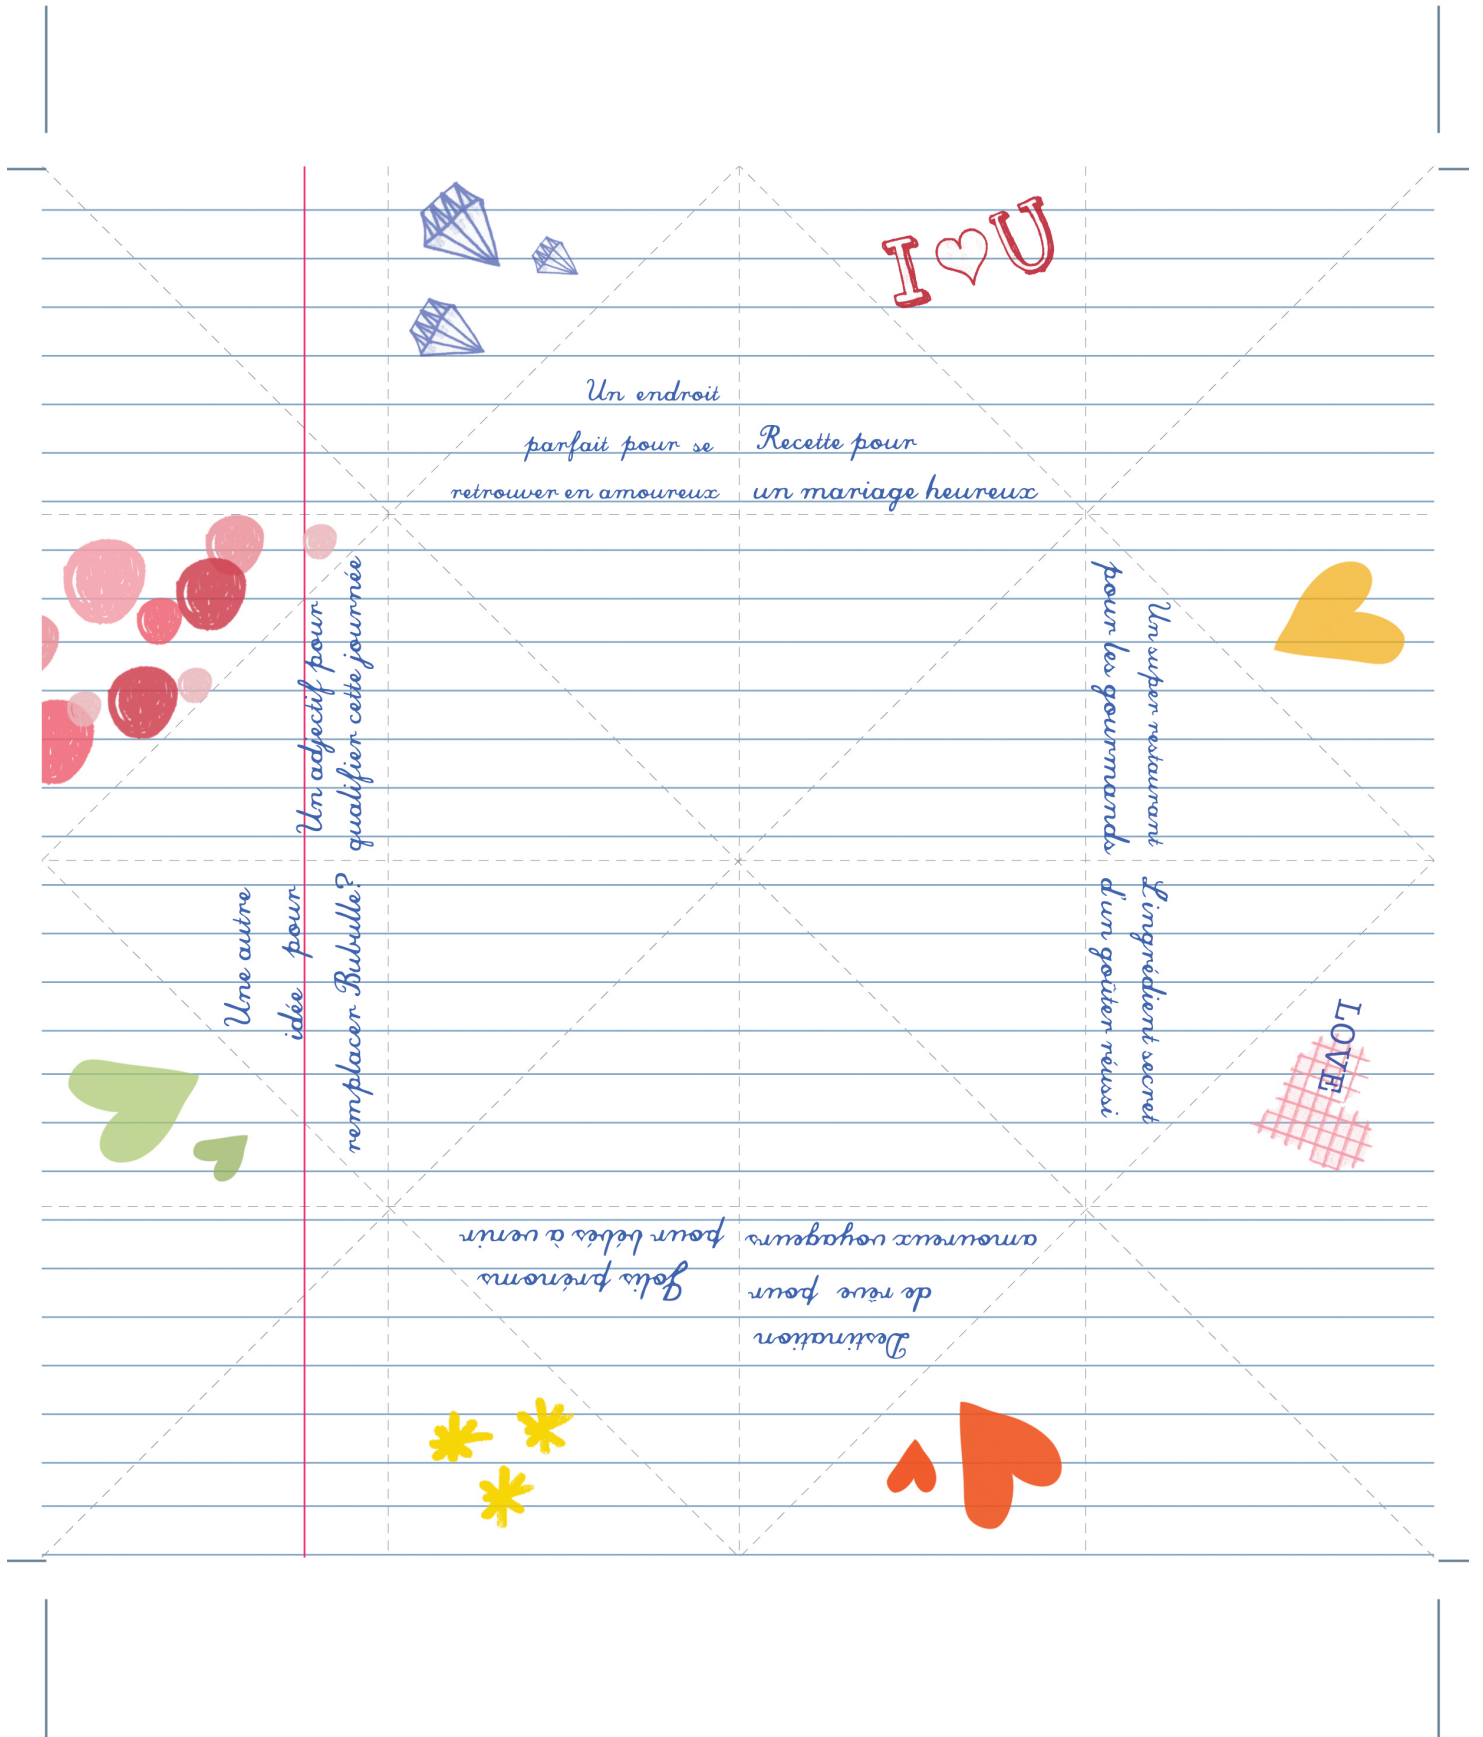 I U
Un endroit
parfait pour se
retrouver en amoureux
Recette pour
un mariage heureux
Un adjectif pour
qualifier cette journée
Un super restaurant
pour les gourmands
Une autre
idée pour
remplacer Bubulle?
L'ingrédient secret
d'un goûter réussi
LOVE
Jolis prénoms
pour bébés à venir
Destination
de rêve pour
amoureux voyageurs